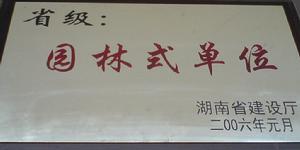 省级：
园林式单位
湖南省建设厅
二00六年元月